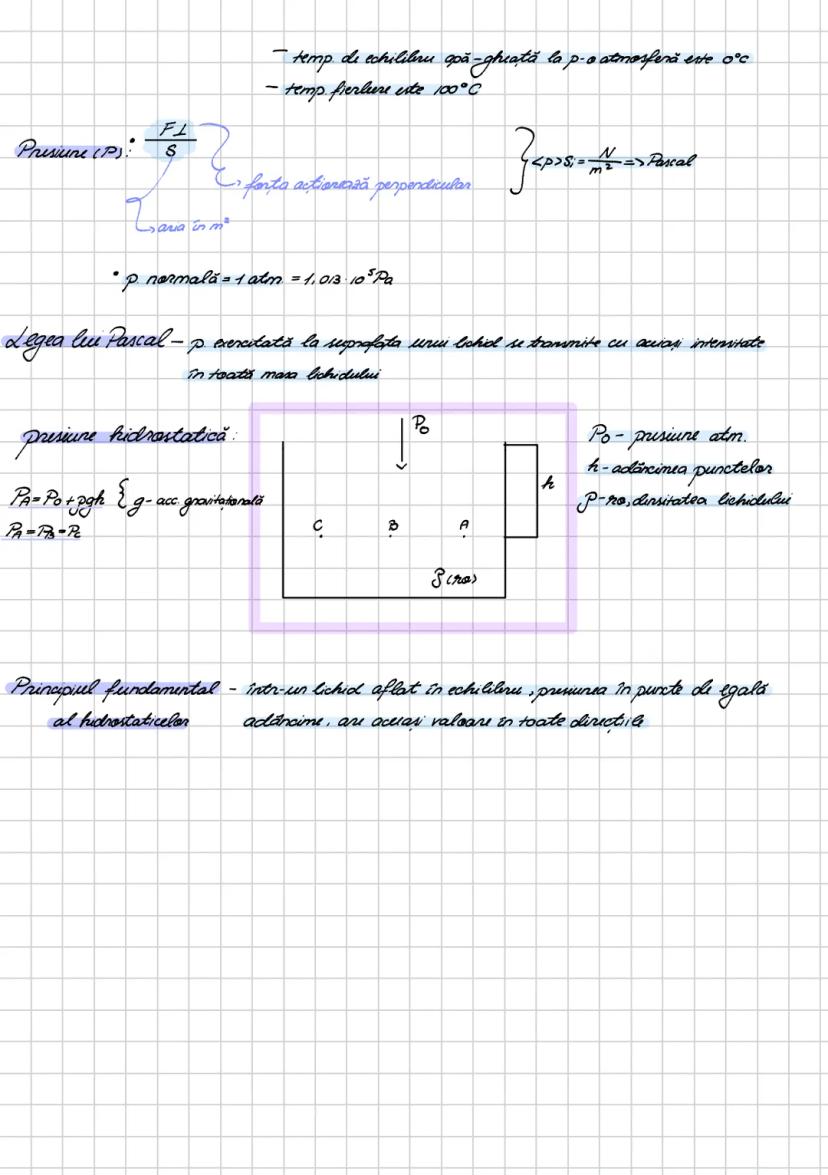 - temp. de echilibru apă-gheață la p-o atmosferă este 0°C
- temp. fierbere este 100°C
Presiune (P): F⊥/S
} <p>Si = N/m² => Pascal
forța acționează perpendicular
aria în m²
• p. normală = 1 atm. = 1,013 · 10⁵ Pa
Legea lui Pascal - p. exercitată la suprafața unui lichid se transmite cu aceiași intensitate
în toată masa lichidului
presiune hidrostatică:
PA = P0 + ρgh { g - acc. gravitațională
PA = PB = PC
P0
h
C B A
ρ (ro)
P0 - presiune atm.
h - adâncimea punctelor
ρ - ro, densitatea lichidului
Principiul fundamental - într-un lichid aflat în echilibru, presiunea în puncte de egală
al hidrostaticelor adâncime, are aceiași valoare în toate direcțiile